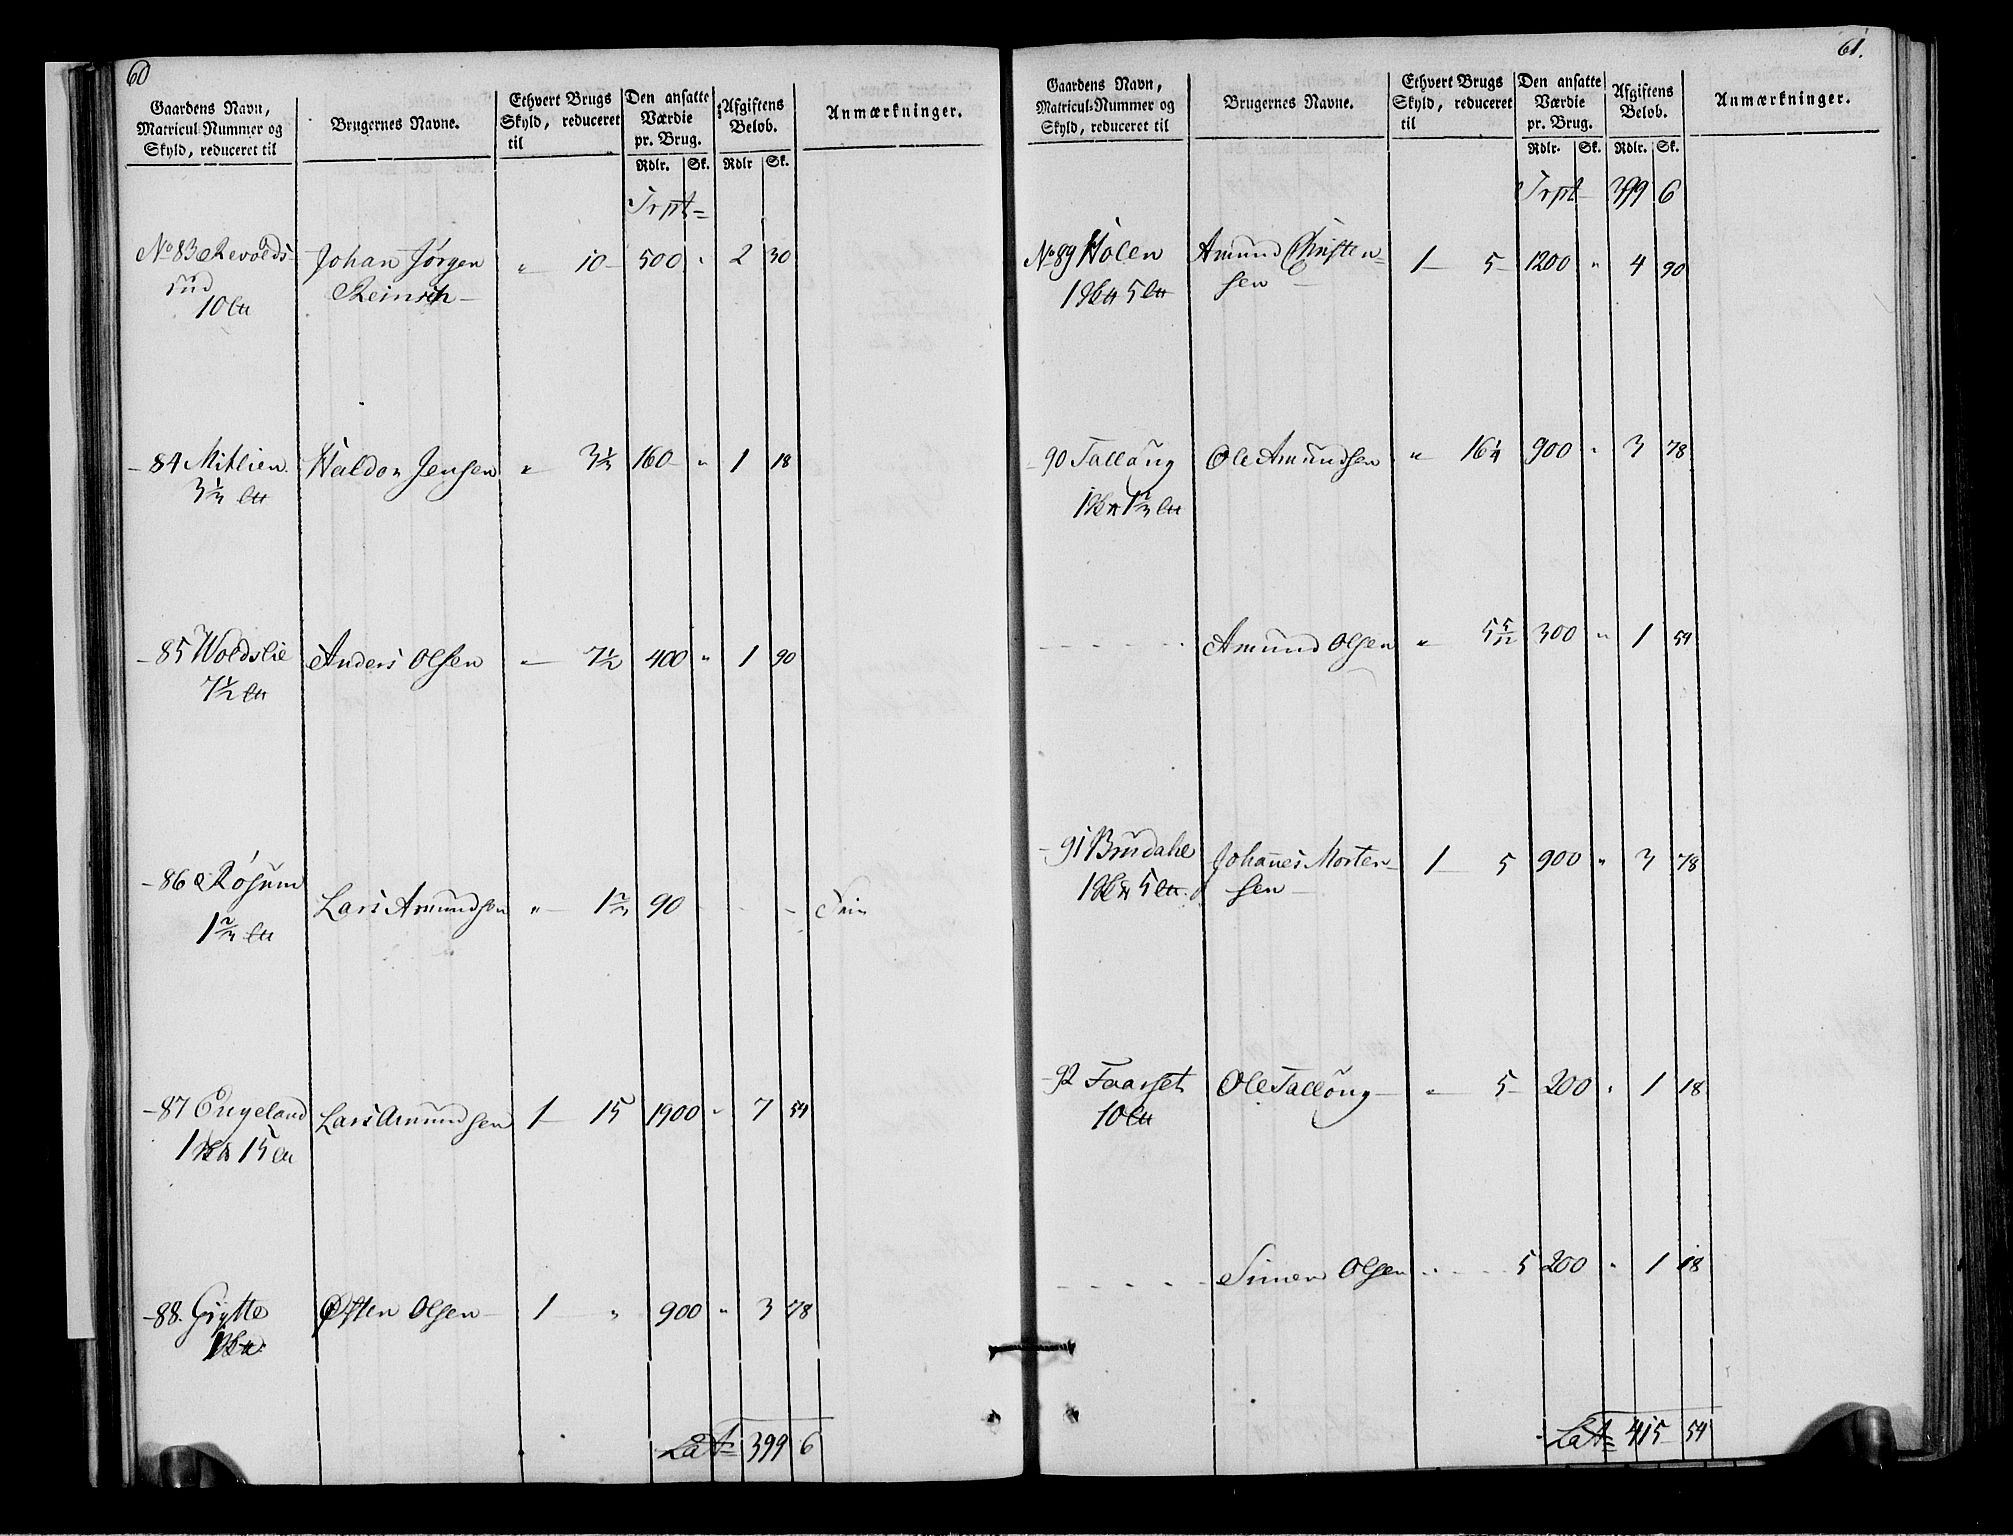 60
Gaardens Navn, Matricul-Nummer og Skyld, reduceret til | Brugernes Navne. | Ethvert Brugs Skyld, reduceret til | Den ansatte Værdie pr. Brug. Rdlr. Sk. | Afgiftens Belob. Rdlr Sk. | Anmærkninger.
Trpt=
No 83 Revolds- Johan Jørgen „ 10 500 „ 2 30
rud Reinsch
10 
84 Mitlien Haldor Jensen „ 3⅓ 160 „ 1 18
3⅓ 
85 Woldslie Anders Olsen „ 7½ 400 „ 1 90
7½ 
86 Røsum Lars Amundsen „ 1⅔ 90 - - - Frie
1⅔ 
87 Engeland Lars Amundsen 1 15 1900 „ 7 54
1 15 
88. Grytte Østen Olsen 1 „ 900 „ 3 78
1
Lat= 399 6
61.
Gaardens Navn, Matricul-Nummer og Skyld, reduceret til | Brugernes Navne. | Ethvert Brugs Skyld, reduceret til | Den ansatte Værdie pr. Brug. Rdlr. Sk. | Afgiftens Belob. Rdlr. Sk. | Anmærkninger.
Trpt 399 6
No 89 Holen Amund Christen= 1 5 1200 „ 4 90
1 5 sen
90 Talløug Ole Amundsen „ 16¼ 900 „ 3 78
1 1⅔
- - - - Amund Olsen „ 5 5/12 300 „ 1 54
91 Brudahe Johannes Morten- 1 5 900 „ 3 78
1 5 sen
92 Faarset Ole Talløug „ 5 200 „ 1 18
10
- - - - - Simen Olsen „ 5 200 „ 1 18
Lat= 415 54